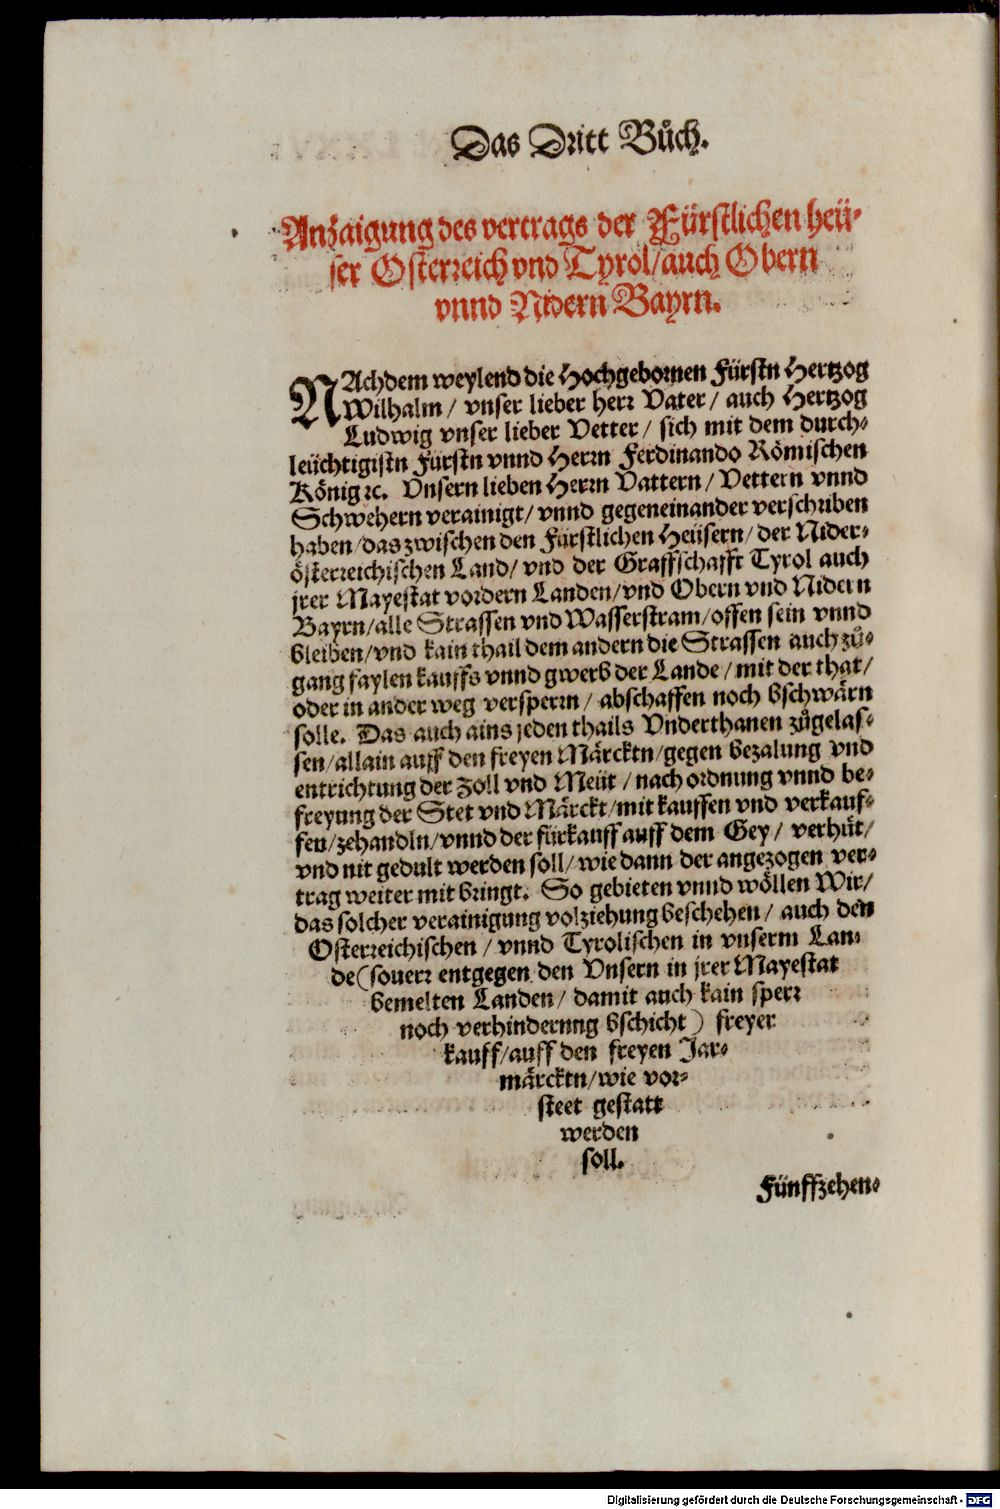 Das Dritt Bůch.
Anzaigung des vertrags der Fürstlichen heü-
ser Osterreich vnd Tyrol/auch Obern
vnnd Nidern Bayrn.
NAchdem weylend die Hochgebornen Fürstn Hertzog
Wilhalm / vnser lieber herr Vater / auch Hertzog
Ludwig vnser lieber Vetter / sich mit dem durch-
leüchtigistn Fürstn vnnd Herrn Ferdinando Römischen
König ꝛc. Vnsern lieben Herrn Vattern / Vettern vnnd
Schwehern verainigt/ vnnd gegeneinander verschriben
haben/das zwischen den Fürstlichen Heüsern/ der Nider-
österreichischen Land/ vnd der Graffschafft Tyrol auch
jrer Mayestat vordern Landen/vnd Obern vnd Nidern
Bayrn/alle Strassen vnd Wasserstram/offen sein vnnd
bleiben/vnd kain thail dem andern die Strassen auch zů-
gang faylen kauffs vnnd gwerb der Lande / mit der that/
oder in ander weg versperrn / abschaffen noch bschwärn
solle. Das auch ains jeden thails Vnderthanen zůgelas-
sen/allain auff den freyen Märcktn/gegen bezalung vnd
entrichtung der Zoll vnd Meüt / nach ordnung vnnd be-
freyung der Stet vnd Märckt/mit kauffen vnd verkauf-
fen/zehandln/vnnd der fürkauff auff dem Gey / verhüt/
vnd nit gedult werden soll/ wie dann der angezogen ver-
trag weiter mit bringt. So gebieten vnnd wöllen Wir/
das solcher verainigung volziehung beschehen / auch den
Osterreichischen / vnnd Tyrolischen in vnserm Lan-
de (souerr entgegen den Vnsern in jrer Mayestat
bemelten Landen/ damit auch kain sperr
noch verhinderung bschicht) freyer
kauff/auff den freyen Jar-
märcktn/wie vor-
steet gestatt
werden
soll.
Fünffzehen-
Digitalisierung gefördert durch die Deutsche Forschungsgemeinschaft - DFG